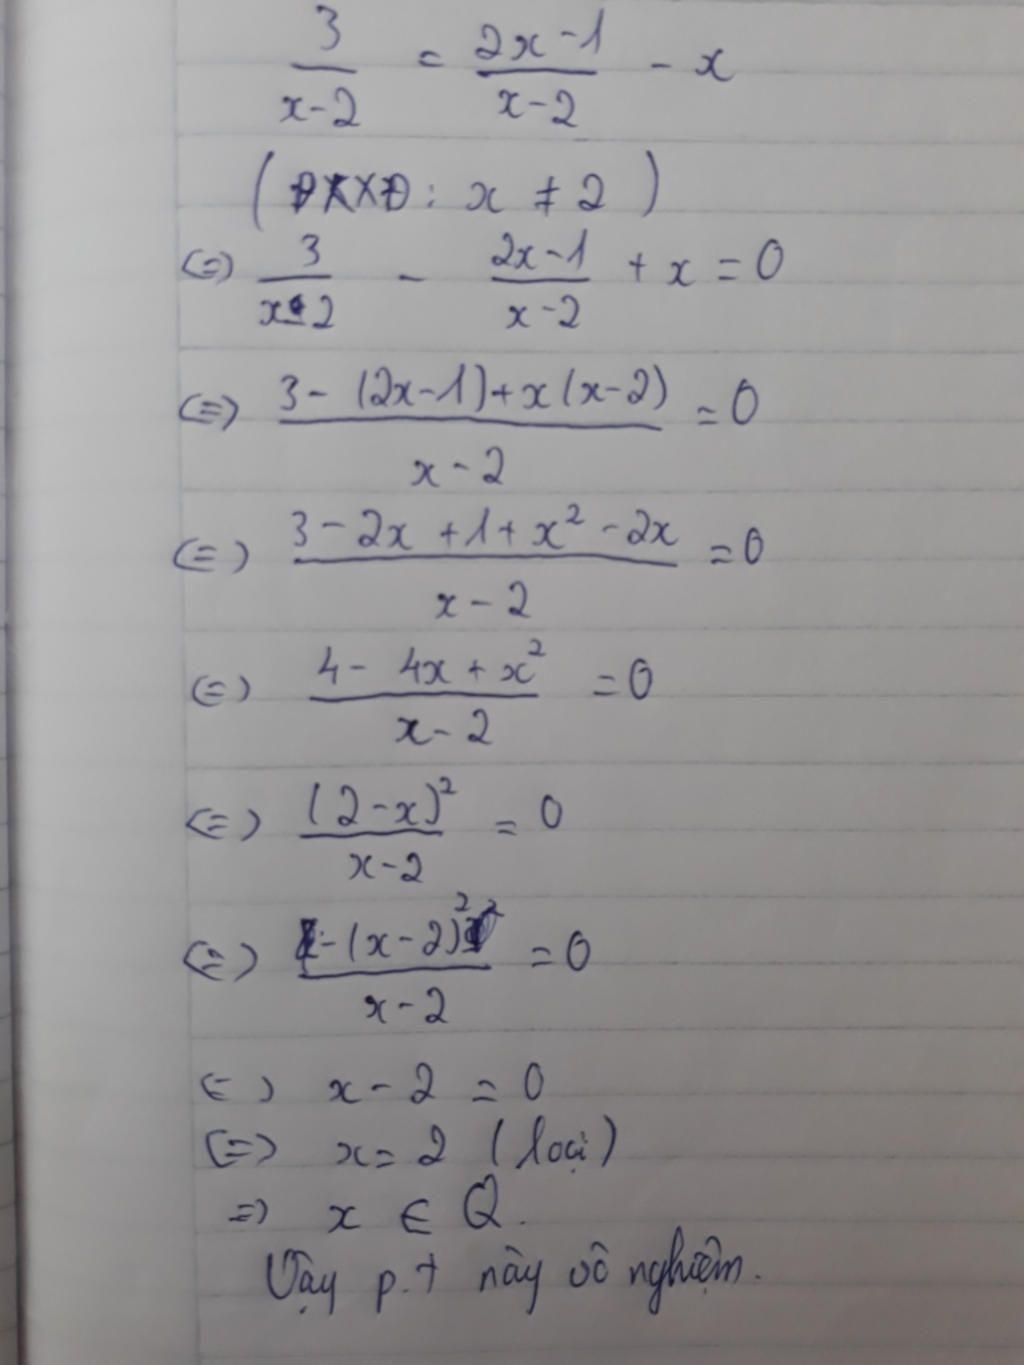 3/(x-2) = (2x-1)/(x-2) - x
(ĐKXĐ: x ≠ 2)
(=) 3/(x-2) - (2x-1)/(x-2) + x = 0
(=) (3-(2x-1)+x(x-2))/(x-2) = 0
(=) (3-2x+1+x²-2x)/(x-2) = 0
(=) (4-4x+x²)/(x-2) = 0
(=) (2-x)²/(x-2) = 0
(=) -(x-2)²/(x-2) = 0
(=) x-2 = 0
(=) x = 2 (loại)
=) x ∈ Q.
Vậy p.t này vô nghiệm.